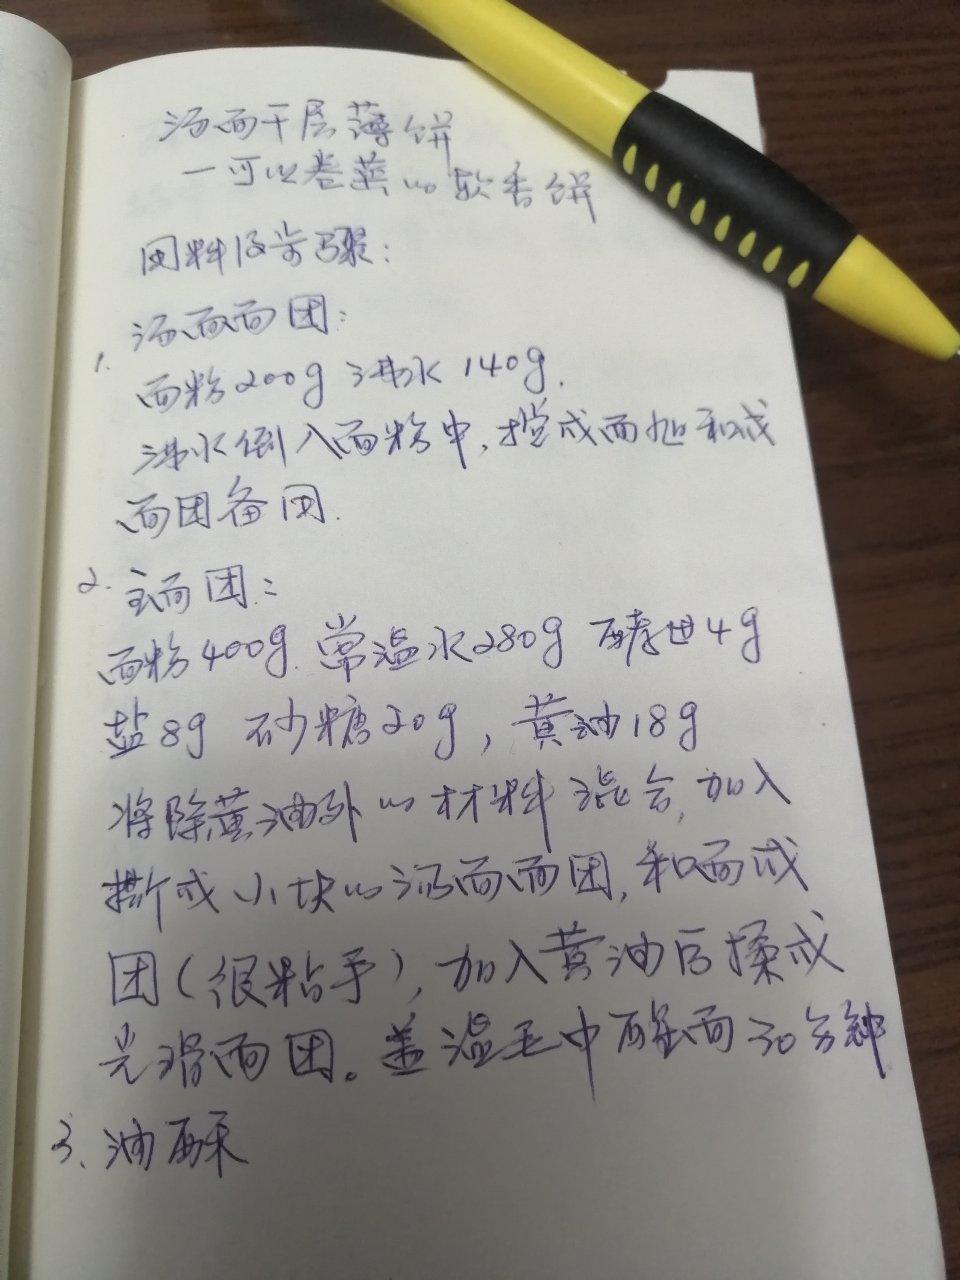 汤面千层薄饼
一可以卷蒸的软香饼
用料及步骤:
汤面面团:
1.
面粉200g 沸水140g.
沸水倒入面粉中,搅成面旭和成
面团备用.
2.主面团:
面粉400g.常温水280g 酵母4g
盐8g 砂糖20g,黄油18g
将除黄油外的材料混合,加入
撕成小块的汤面面团,和面成
团(很粘手),加入黄油后揉成
光滑面团。盖湿毛巾醒面30分钟
3、油酥